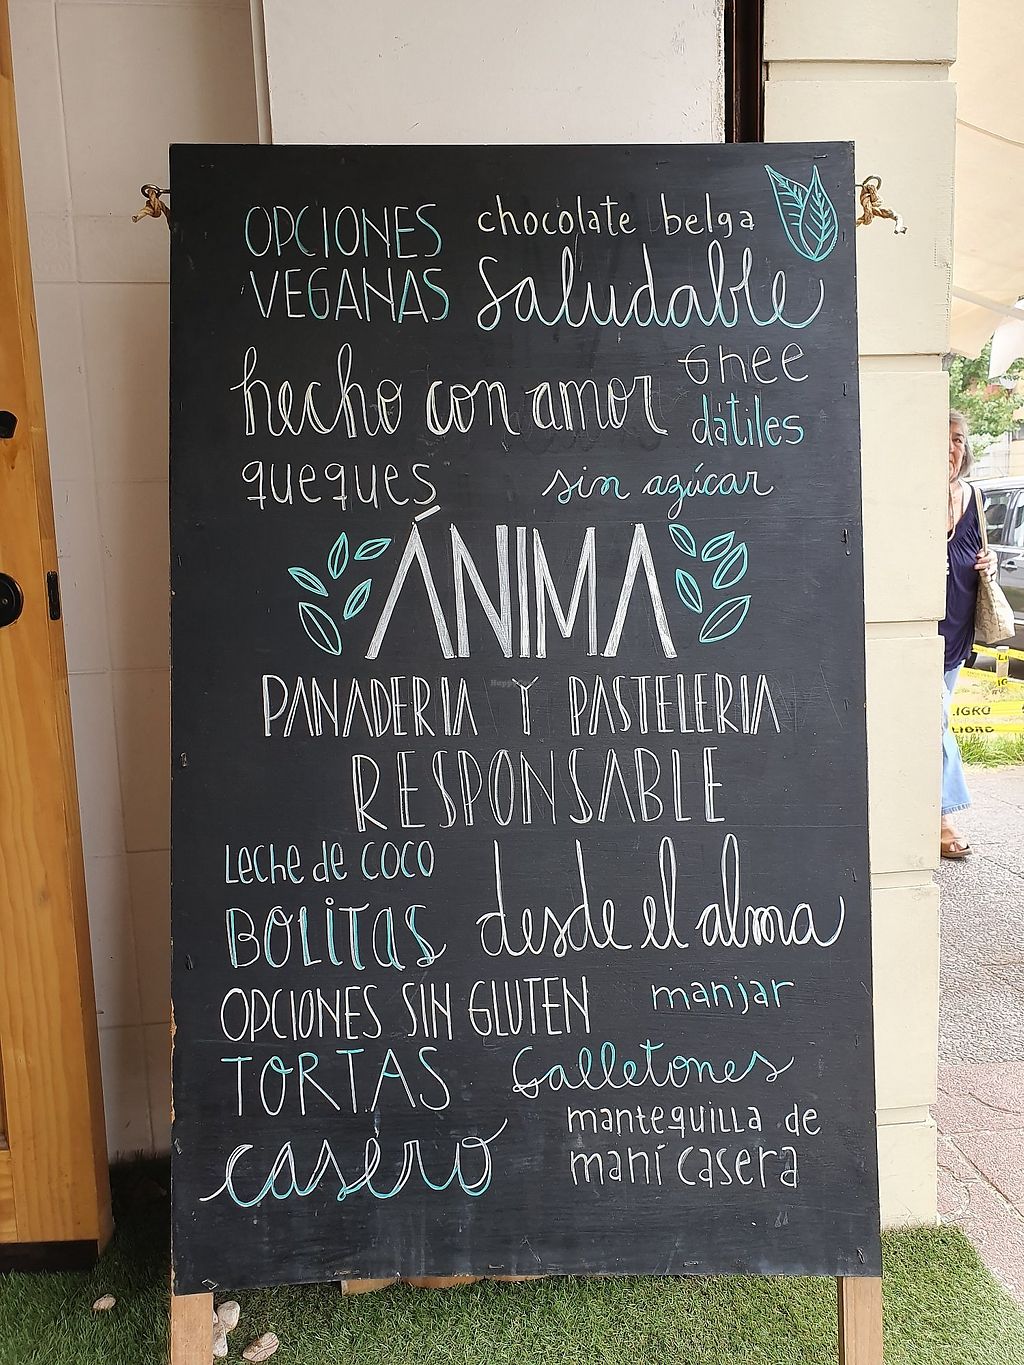 OPCIONES
VEGANAS
chocolate belga
saludable
hecho con amor
Ghee
dátiles
queques
sin azúcar
ÁNIMA
HappyCow
PANADERIA Y PASTELERIA
RESPONSABLE
Leche de coco
BOLITAS
desde el alma
OPCIONES SIN GLUTEN
manjar
TORTAS
Galletones
mantequilla de
maní casera
casero
LIGRO
LIGRO